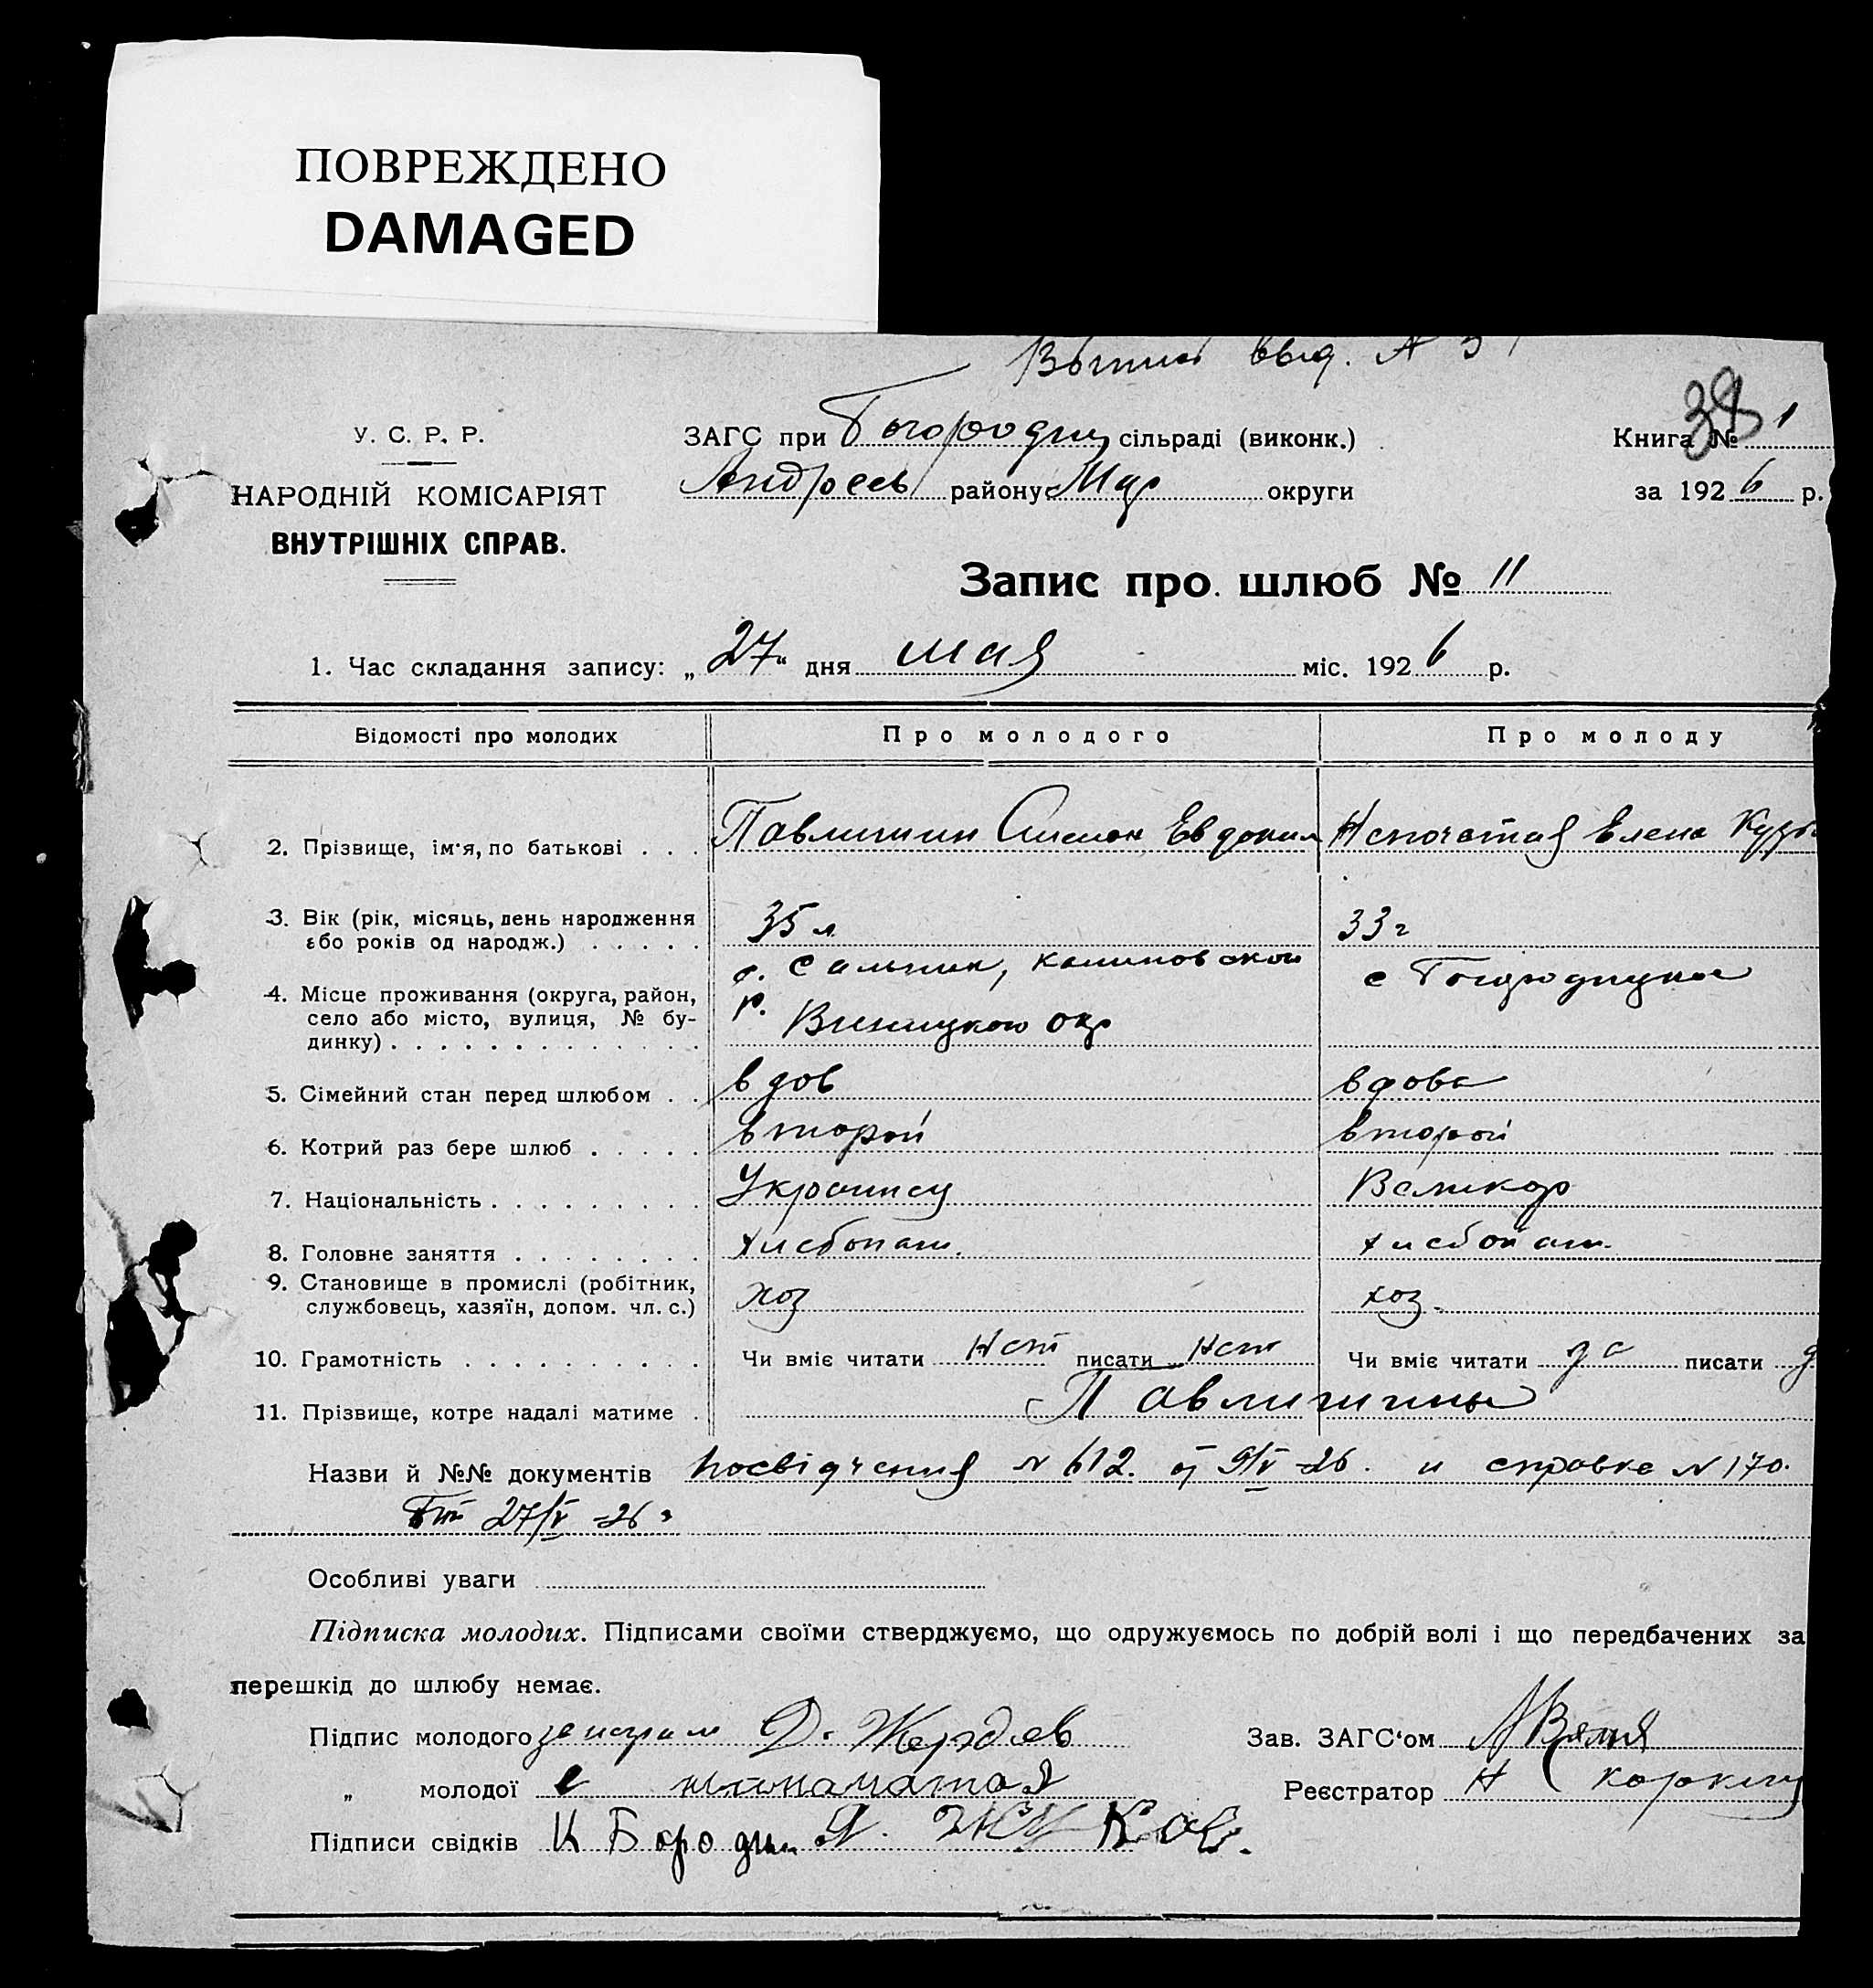 ПОВРЕЖДЕНО
DAMAGED
выд. №
У. С. Р. Р.
НАРОДНІЙ КОМІСАРІЯТ
ВНУТРІШНІХ СПРАВ.
ЗАГС при сільраді (виконк.)
Андреев району Мар округи
38
Книга № 1
за 1926 р.
Запис про шлюб № 11
1. Час складання запису: „27" дня мая міс. 1926 р.
Відомості про молодих Про молодого Про молоду
2. Прізвище, ім'я, по батькові . . . Павлишин Симон Евдоким Непочатая Елена Кузь
3. Вік (рік, місяць, день народження або років од народж.) . . . . . 35 л 33 г
4. Місце проживання (округа, район, село або місто, вулиця, № будинку) . . . . . . . . . . . . . с. Сальник, Калиновской р. Виницкой окр с
5. Сімейний стан перед шлюбом . . вдов вдова
6. Котрий раз бере шлюб . . . . . второй второй
7. Національність . . . . . . . . . Украинец Великор
8. Головне заняття . . . . . . . . хлебопаш. хлебопаш.
9. Становище в промислі (робітник, службовець, хазяїн, допом. чл. с.) хоз хоз.
10. Грамотність . . . . . . . . . . Чи вміє читати Нет писати Нет Чи вміє читати да писати д
11. Прізвище, котре надалі матиме . Павлишины
Назви й №№ документів посвідчения № 612. от 9/V-26. и справка № 170.
от 27/V-26 г
Особливі уваги
Підписка молодих. Підписами своїми стверджуємо, що одружуємось по добрій волі і що передбачених за
перешкід до шлюбу немає.
Підпис молодого Д. Жердев Зав. ЗАГС'ом
„ молодої Реєстратор Н
Підписи свідків И Бороди Я. Жуков.